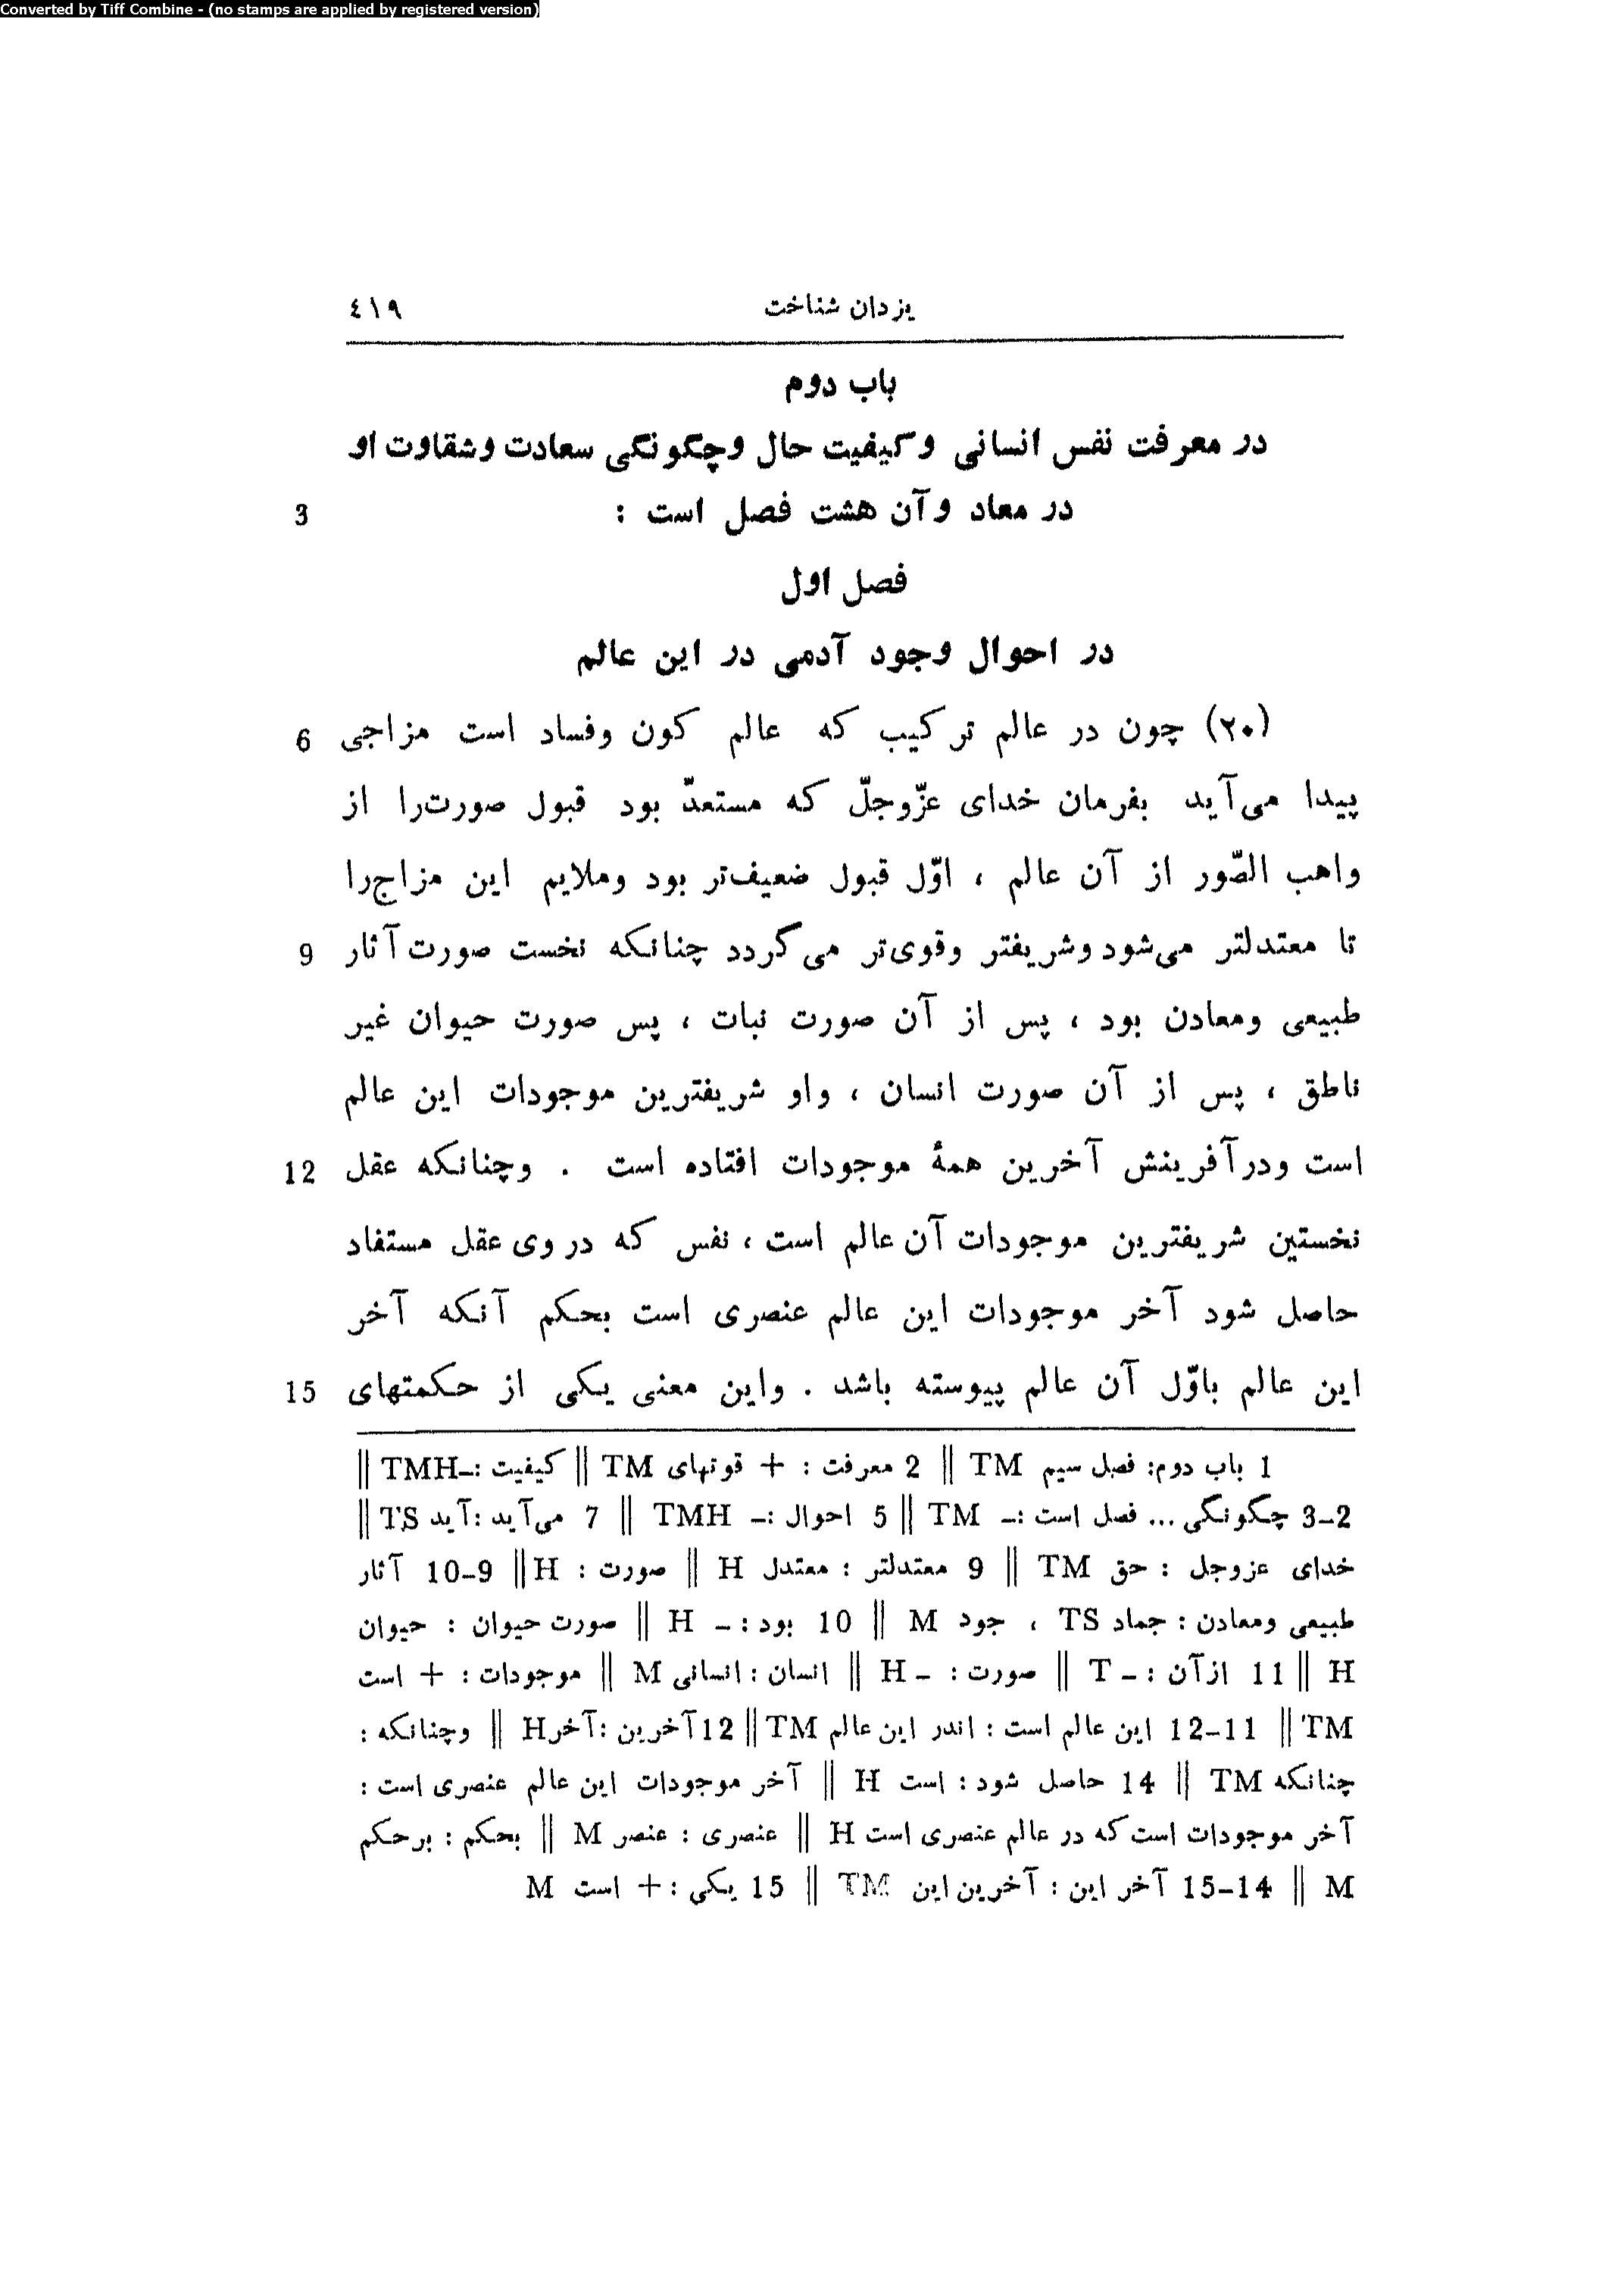 Converted by Tiff Combine - (no stamps are applied by registered version)
یزدان شناخت ٤١٩
باب دوم
در معرفت نفس انسانی وکیفیت حال وچگونگی سعادت وشقاوت او
در معاد وآن هشت فصل است : 3
فصل اول
در احوال وجود آدمی در این عالم
(٢٠) چون در عالم ترکیب که عالم کون وفساد است مزاجی 6
پیدا می‌آید بفرمان خدای عزّوجلّ که مستعدّ بود قبول صورت‌را از
واهب الصّور از آن عالم ، اوّل قبول ضعیف‌تر بود وملایم این مزاج‌را
تا معتدلتر می‌شود وشریفتر وقوی‌تر می‌گردد چنانکه نخست صورت آثار 9
طبیعی ومعادن بود ، پس از آن صورت نبات ، پس صورت حیوان غیر
ناطق ، پس از آن صورت انسان ، واو شریفترین موجودات این عالم
است ودر آفرینش آخرین همهٔ موجودات افتاده است . وچنانکه عقل 12
نخستین شریفترین موجودات آن عالم است ، نفس که در وی عقل مستفاد
حاصل شود آخر موجودات این عالم عنصری است بحکم آنکه آخر
این عالم باوّل آن عالم پیوسته باشد . واین معنی یکی از حکمتهای 15
1 باب دوم: فصل سیم TM || 2 معرفت : + قوتهای TM || کیفیت :- TMH ||
2-3 چگونگی ... فصل است :- TM || 5 احوال :- TMH || 7 می‌آید :آید TS ||
خدای عزوجل : حق TM || 9 معتدلتر : معتدل H || صورت : H || 9-10 آثار
طبیعی ومعادن : جماد TS ، جود M || 10 بود : - H || صورت حیوان : حیوان
H || 11 ازآن : - T || صورت : - H || انسان : انسانی M || موجودات : + است
TM || 11-12 این عالم است : اندر این عالم TM || 12 آخرین :آخر H || وچنانکه :
چنانکه TM || 14 حاصل شود : است H || آخر موجودات این عالم عنصری است :
آخر موجودات است که در عالم عنصری است H || عنصری : عنصر M || بحکم : برحکم
M || 14-15 آخر این : آخرین این TM || 15 یکی : + است M